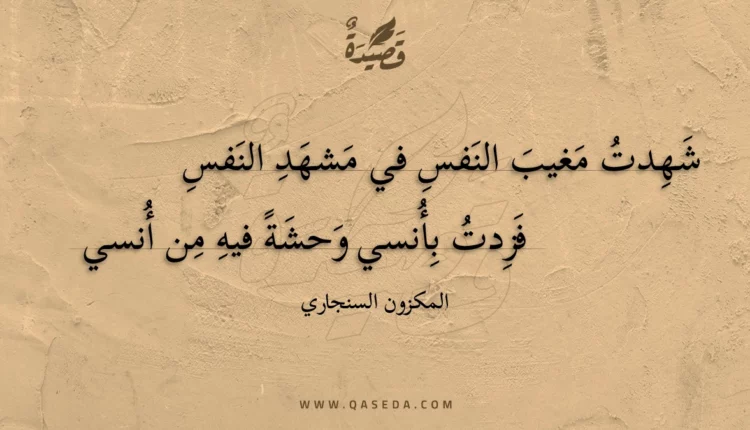 قَصِيدَةٌ
شَهِدتُ مَغيبَ النَفسِ في مَشهَدِ النَفسِ
فَزِدتُ بِأُنسي وَحشَةً فيهِ مِن أُنسي
المكزون السنجاري
WWW.QASEDA.COM